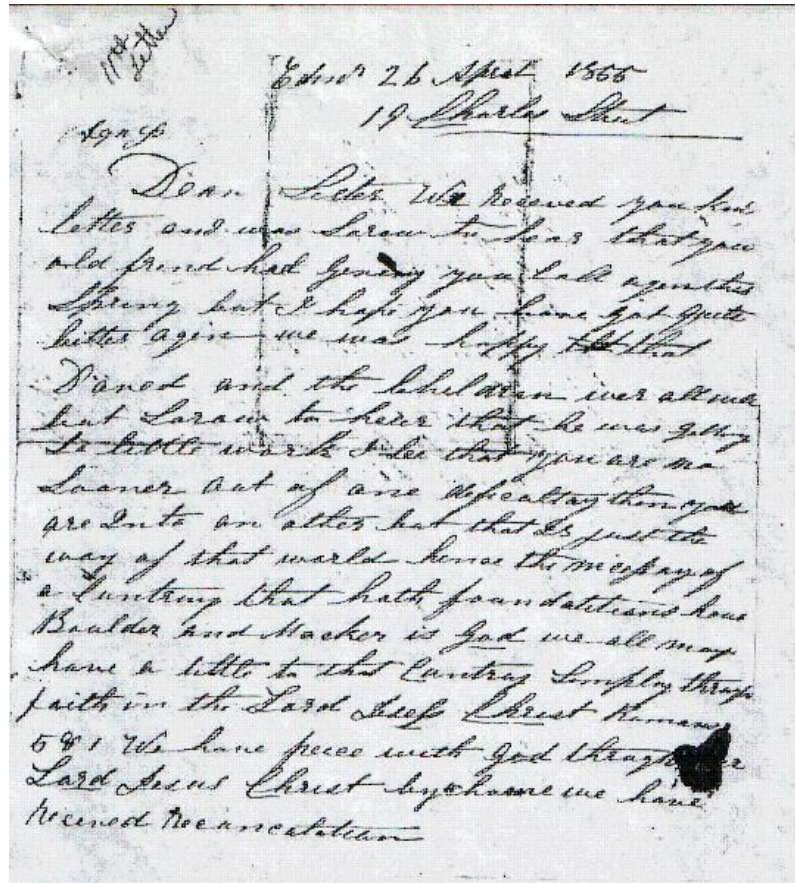 11th Letter
Edinr 26 Aprel 1866
19 Charles Street
Dear Sister We Receved you kin
letter and was Sarow to hear that you
old frend had you Call agen this
Spring but I hope you have got quite
better agin we was happy that
and the Cheldren wer all well
but Sarow to heer that he was getting
So little work I See that you are no
Sooner out of one deficaltay then you
are Into an other but that Is just the
way of that world hence the of
a Cuntray that hath foundatitions hous
Boulder and Macker is God we all may
have a tittle to that Cuntray Semploy throug
faith in the Lord Christ Romans
5 & 1 We have peece with god throug
Lord Jesus Christ by we have
receved